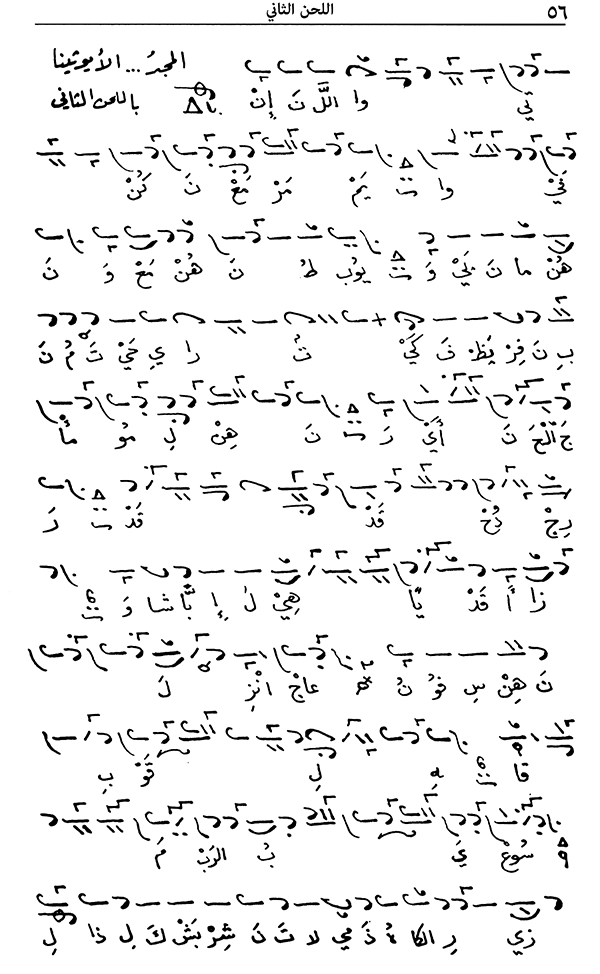 ٥٦ اللحن الثاني
المجدُ... الأيوثينا
باللحن الثاني
تي وا اللَّ تَ إِنْ
وا يَمْ مَرْ مَعْ نَ كُنْ
هُنْ ما نَ بَيْ وَ يُوبِ طُ نَ هُنْ مَعْ وَ نَ
بِ نَ فِرْ يَظْ فَ كَيْ تُ را يِ حَيْ تَ مُ نَ
جَ الْحَ نَ أَيْ رَ نَ هِنْ لِ مُو مأْ
رِجْ دُحْ قَدْ قَدْ رَ
زا أَ قَدْ يًّا هِيْ لَ إِ بًّا شا وَ
نَ هِنْ سِ فو نُ عاجْ انْزِ لَ
قا هِ لِ قَوْ بِ
سُوعْ يَ بُ الرَبْ مَ
زي رِ الكا هُ ذَ مي لا تَ نَ شِرْ بَشْ كَ لِ ذا لِ